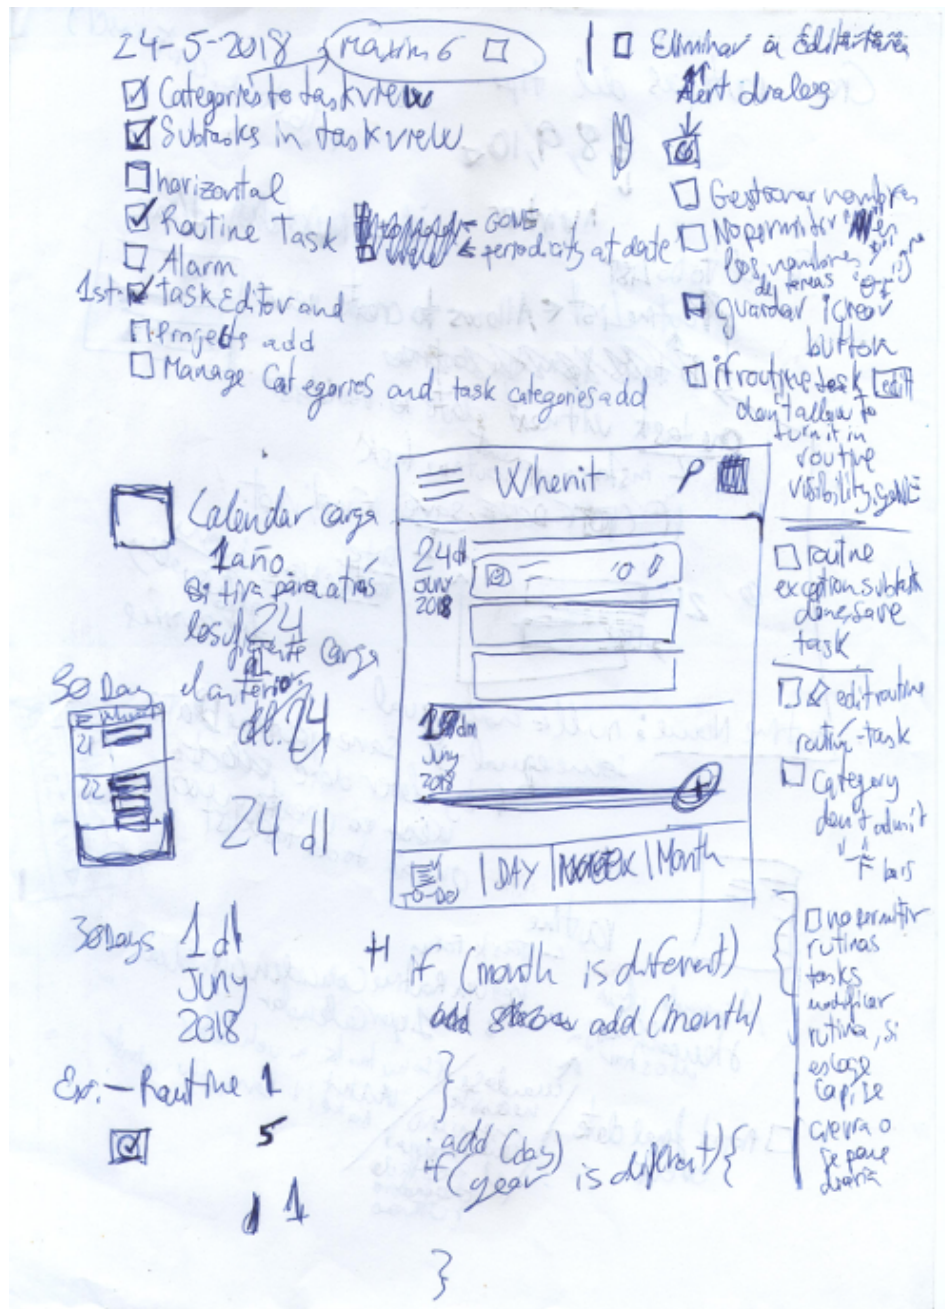 24-5-2018 Maxim 6
Categories to taskview
Subtasks in taskview
horizontal
Routine Task - GONE
periodicity at date
Alarm
1st task Editor and
Projects add
Manage Categories and task categories add
Eliminar a Editar tarea
Alert dialog
Gestionar nombres
No permitir en
los nombres
de tareas
guardar / crear
button
if routine task edit
don't allow to
turn it in
routine
visibility gone
routine
exception subtask
done save
task
edit routine
routin-task
Category
don't admit
no permitir
rutinas
tasks
modificar
rutina, si
escoge
cierra o
se pone
diaria
Calendar carga
1 año.
si tira para atrás
lo suficiente carga
el anterior.
24
dl.24
24 dl
30 Day
21
22
Whenit
24 dl
Juny
2018
Juny
2018
TO-DO | DAY | WEEK | Month
30 Days 1 dl
Juny
2018
Ex. - Routine 1
5
d 1
if (month is different)
add (month)
}
add (day)
if (year is different) {
}